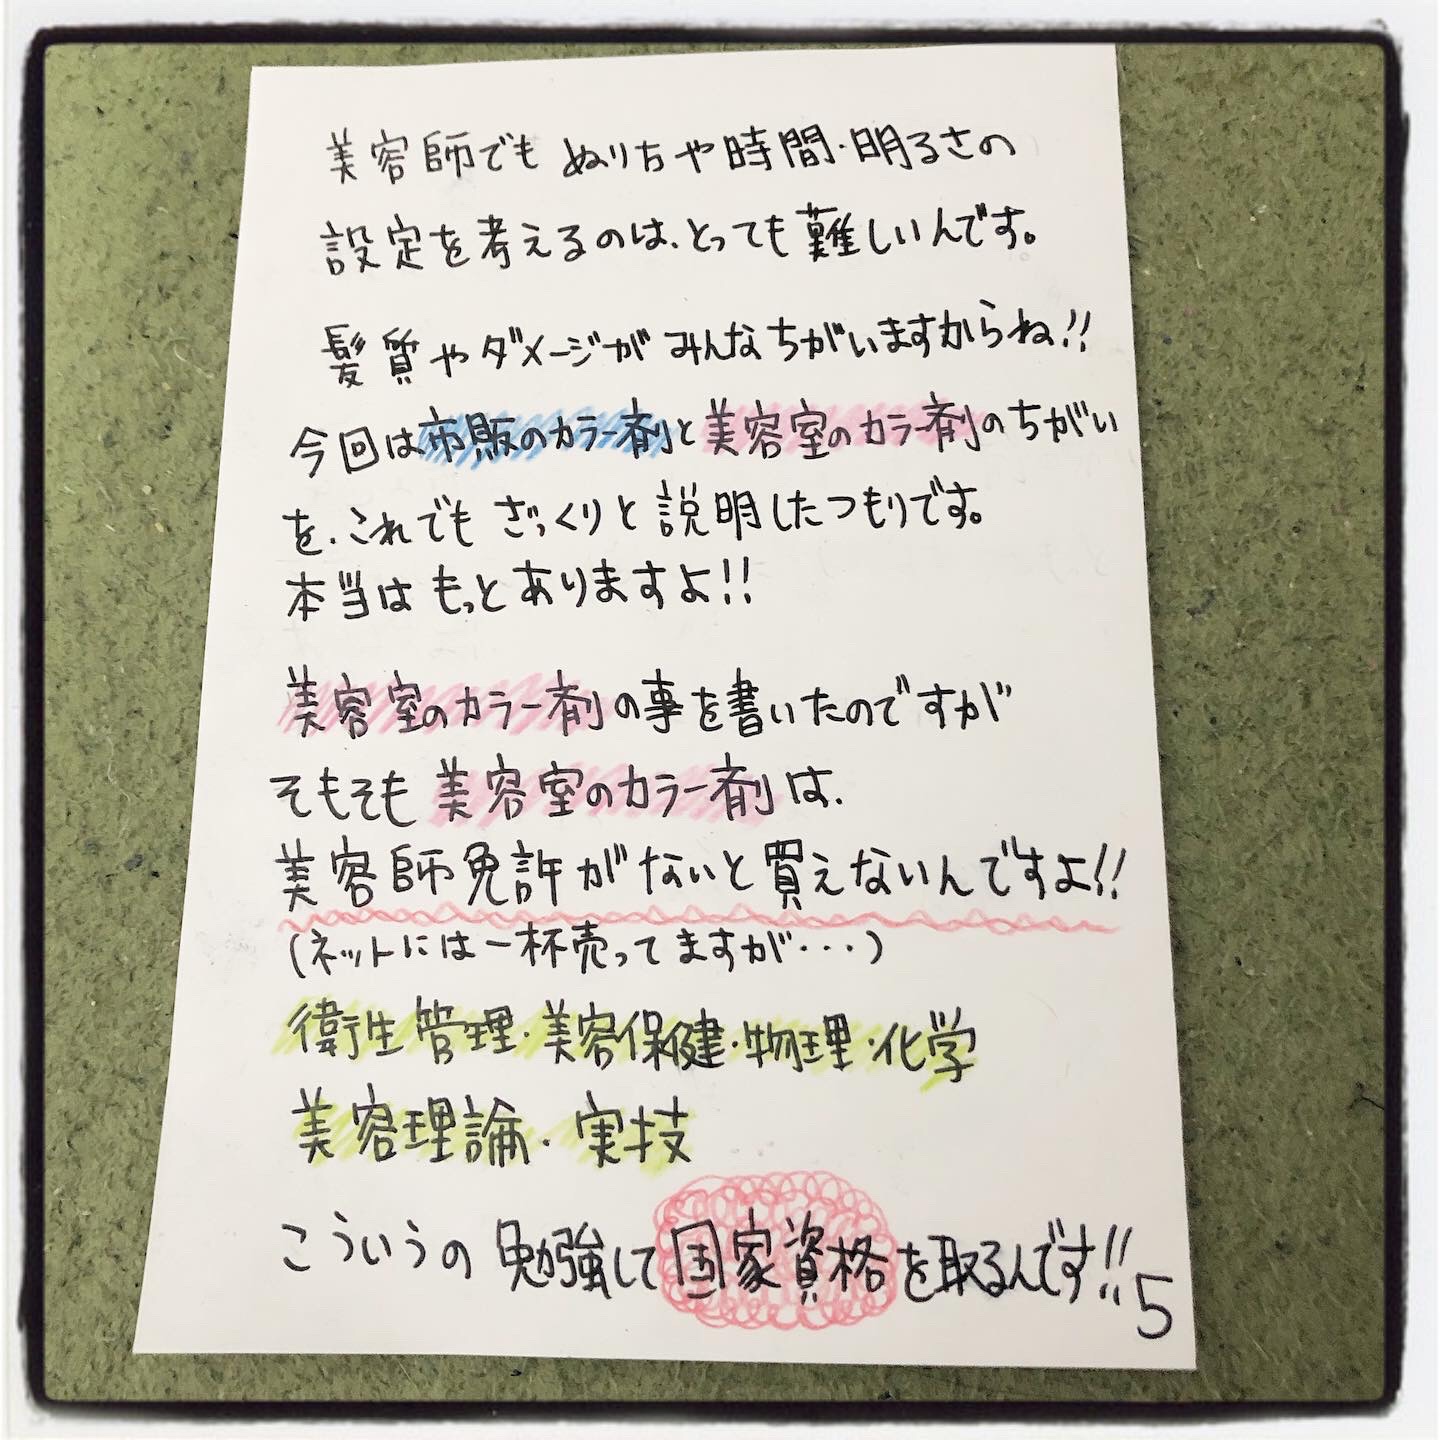 美容師でも ぬり方や時間・明るさの
設定を考えるのは、とっても難しいんです。
髪質やダメージが みんなちがいますからね!!
今回は市販のカラー剤と美容室のカラー剤のちがい
を、これでも ざっくりと説明したつもりです。
本当は もっとありますよ!!
美容室のカラー剤の事を書いたのですが
そもそも 美容室のカラー剤は、
美容師免許がないと買えないんですよ!!
(ネットには一杯売ってますが・・・)
衛生管理・美容保健・物理・化学
美容理論・実技
こういうの 勉強して国家資格を取るんです!!
5